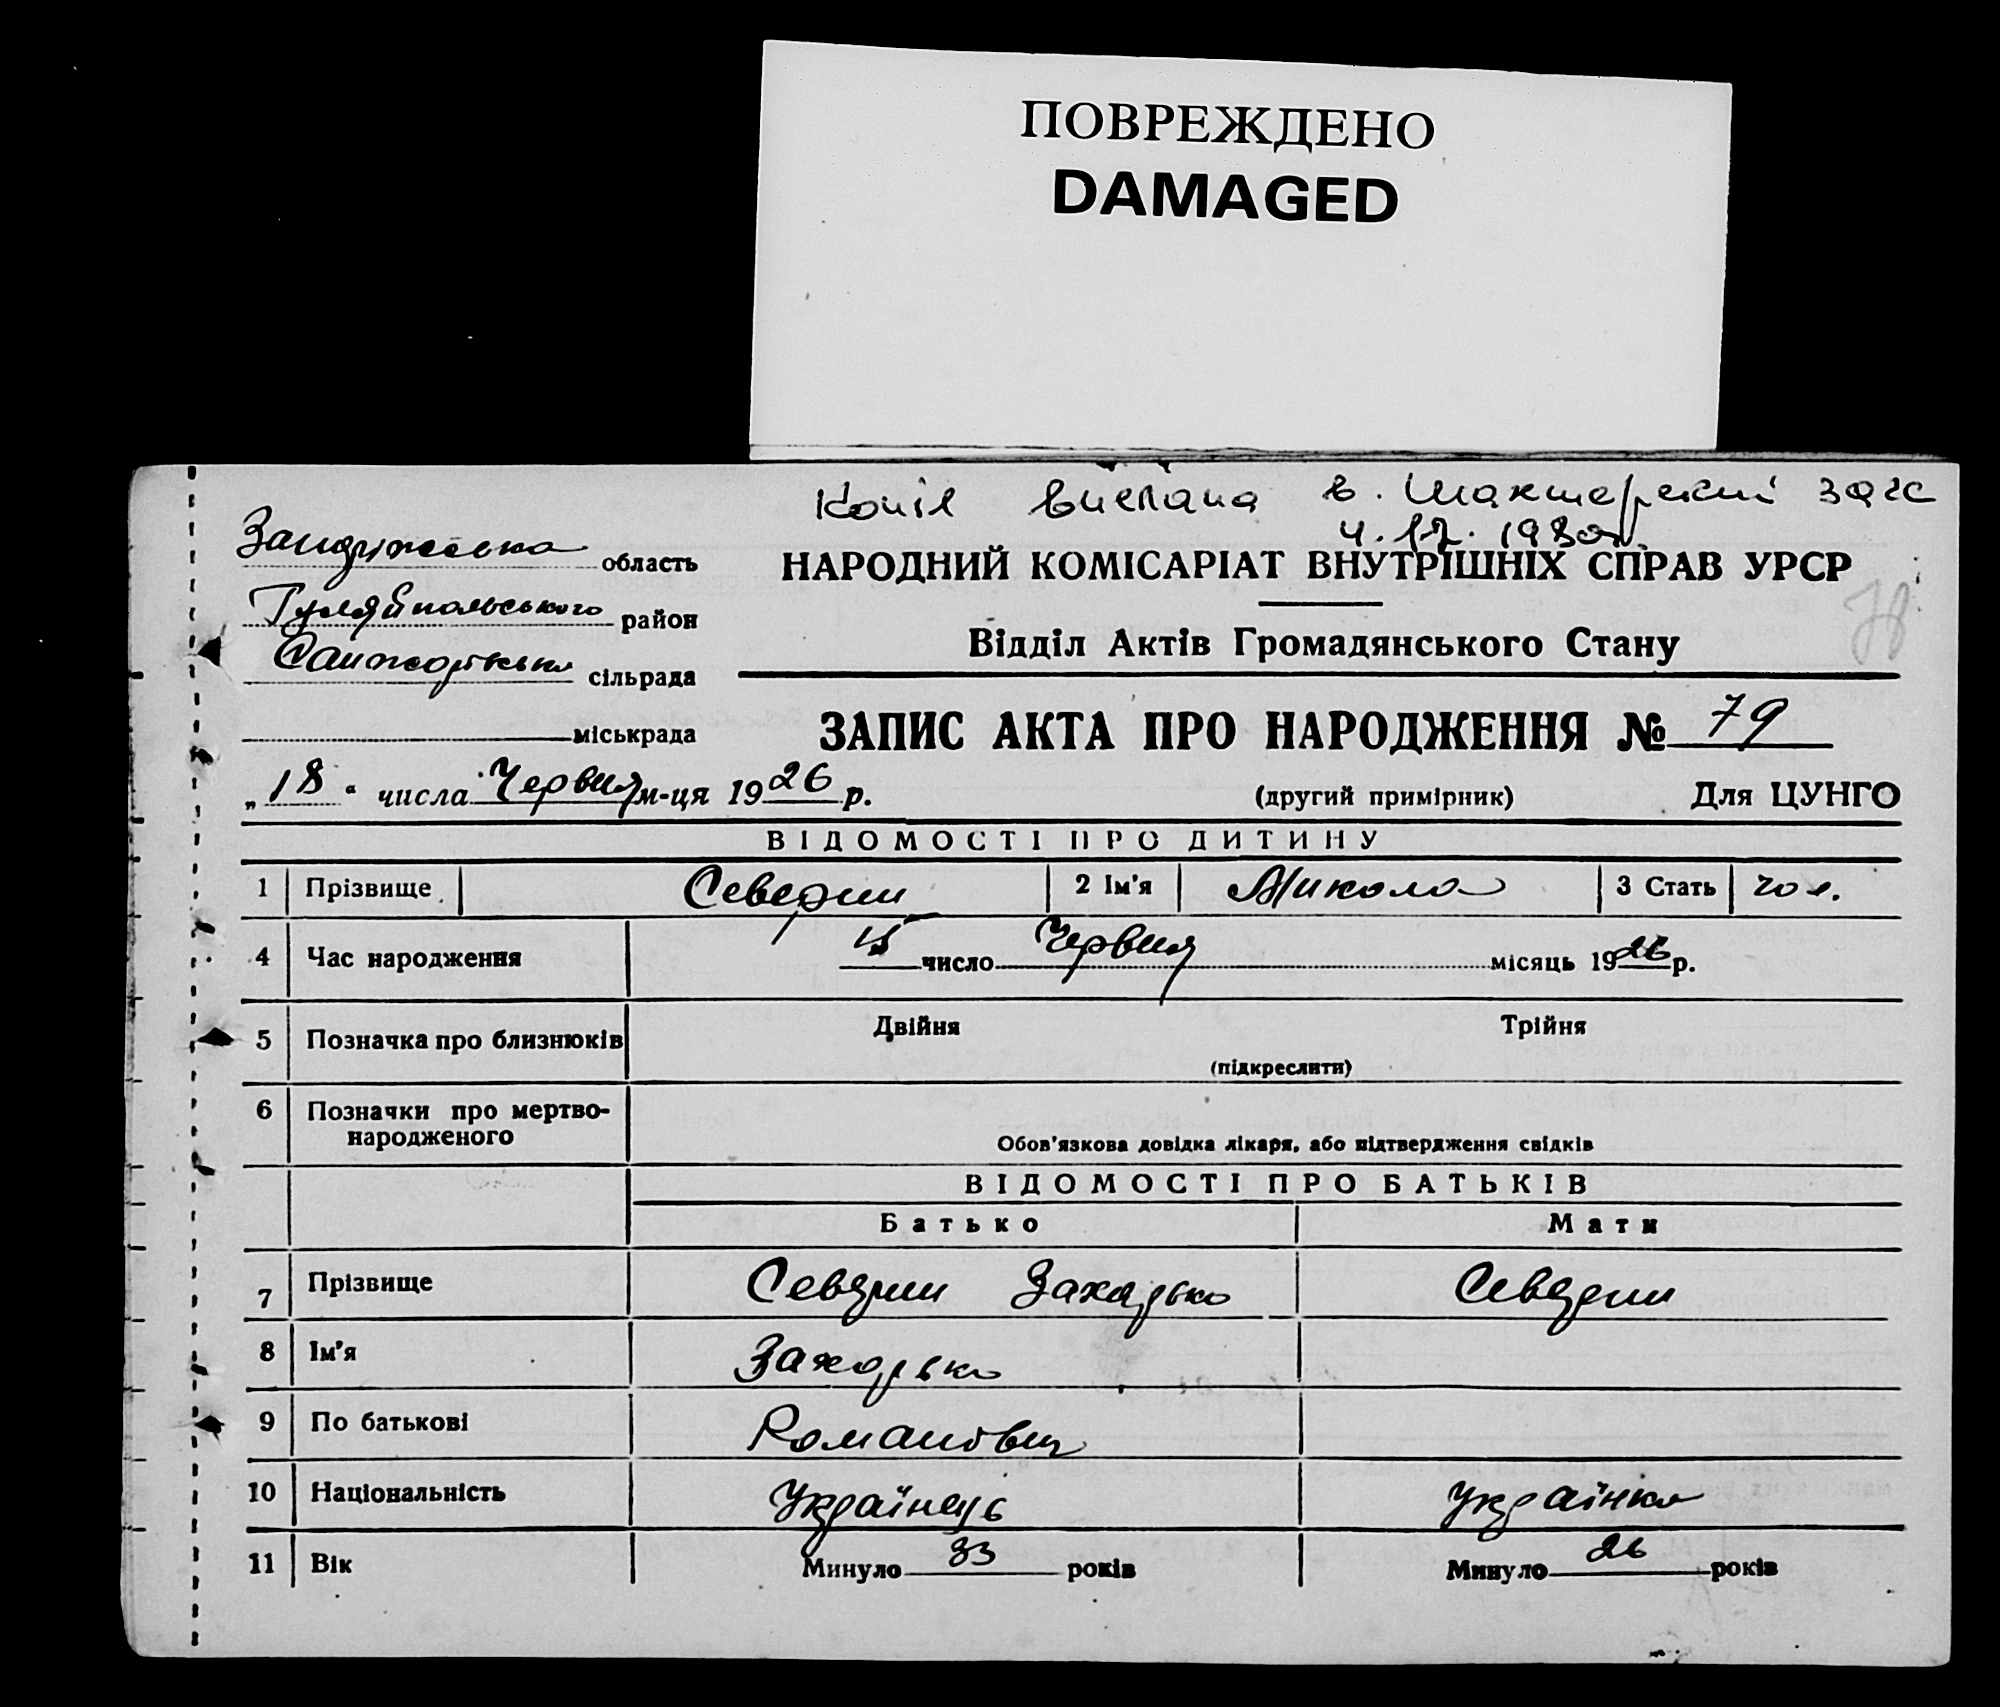 ПОВРЕЖДЕНО
DAMAGED
Копія вислана в. Шахтерский загс
4.12.1980г.
Запорізька область
Гуляйпольського район
сільрада
міськрада
НАРОДНИЙ КОМІСАРІАТ ВНУТРІШНІХ СПРАВ УРСР
Відділ Актів Громадянського Стану
78
ЗАПИС АКТА ПРО НАРОДЖЕННЯ № 79
„18" числа Червня м-ця 1926 р.
(другий примірник) Для ЦУНГО
ВІДОМОСТІ ПРО ДИТИНУ
1 Прізвище Северин 2 Ім'я Микола 3 Стать чол.
4 Час народження 15 число Червня місяць 1926 р.
5 Позначка про близнюків Двійня Трійня
(підкреслити)
6 Позначки про мертво-
народженого
Обов'язкова довідка лікаря, або підтвердження свідків
ВІДОМОСТІ ПРО БАТЬКІВ
Батько Мати
7 Прізвище Северин Захарько Северин
8 Ім'я Захарько
9 По батькові Романович
10 Національність Українець Українка
11 Вік Минуло 33 років Минуло 26 років